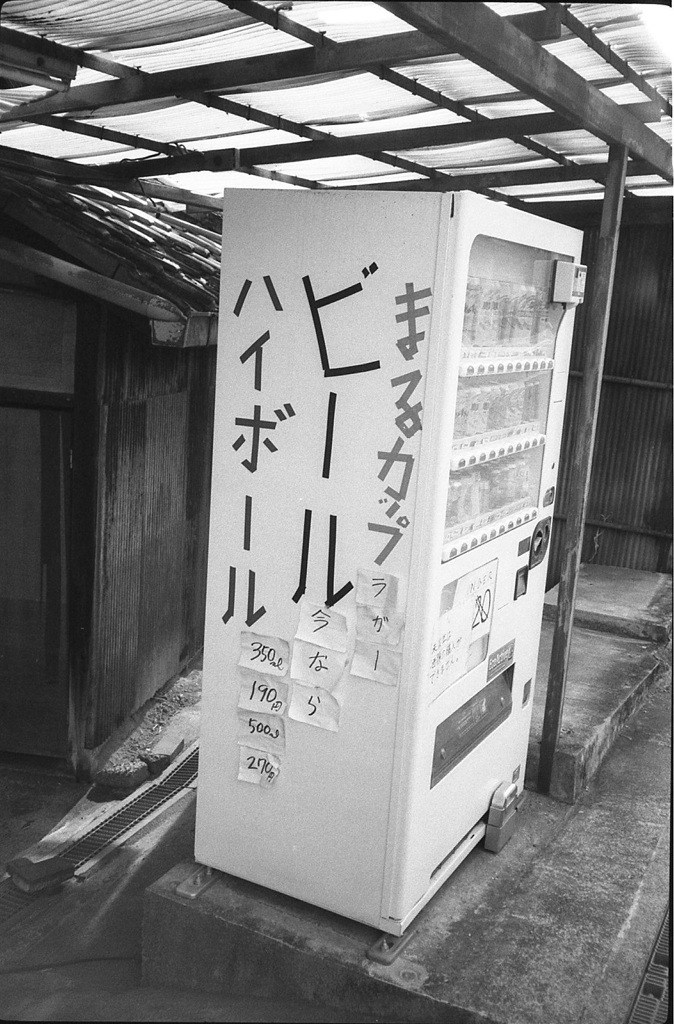 まるカップ
ラガー
ビール
今なら
ハイボール
350ml
190円
500ml
270円
UNDER
20